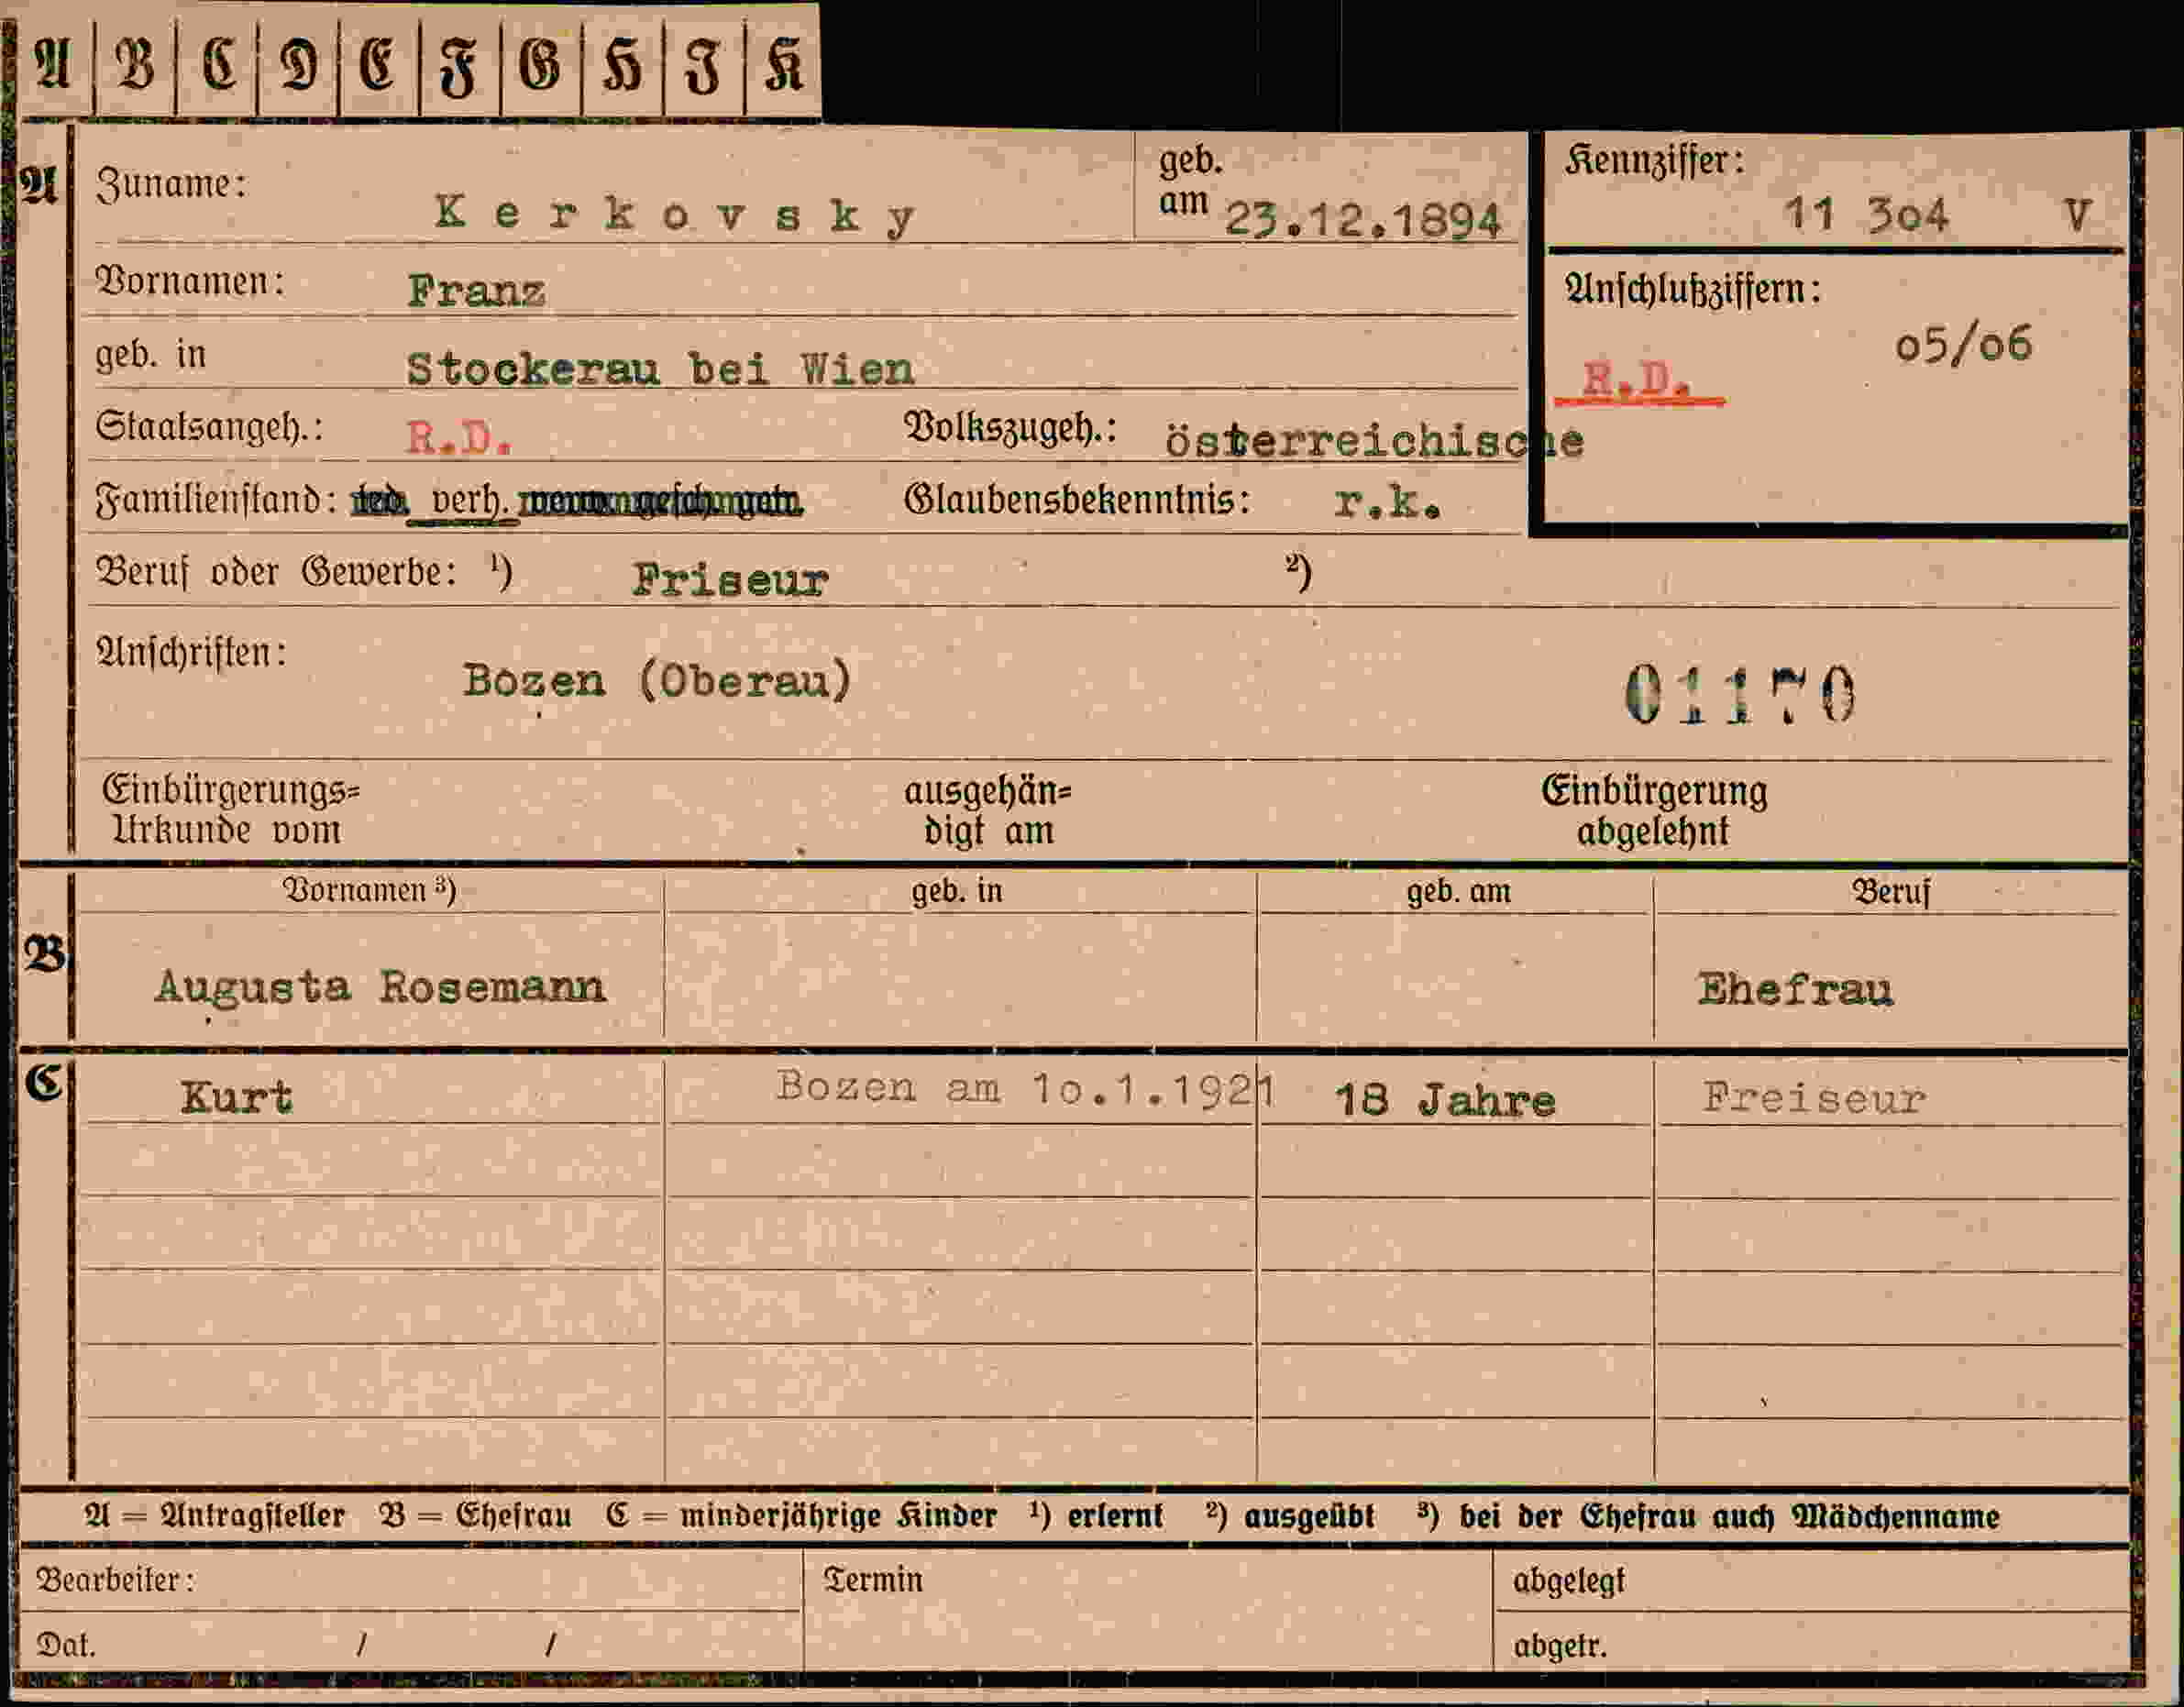 A B C D E F G H I K
A
Zuname: Kerkovsky
geb. am 23.12.1894
Kennziffer: 11 3o4 V
Vornamen: Franz
Anschlußziffern: o5/o6
R.D.
geb. in Stockerau bei Wien
Staatsangeh.: R.D. Volkszugeh.: österreichische
Familienstand: led. verh. Glaubensbekenntnis: r.k.
Beruf oder Gewerbe: ¹) Friseur ²)
Anschriften: Bozen (Oberau) 01170
Einbürgerungs=
Urkunde vom
ausgehän=
digt am
Einbürgerung
abgelehnt
Vornamen ³) geb. in geb. am Beruf
B Augusta Rosemann Ehefrau
C Kurt Bozen am 1o.1.1921 18 Jahre Freiseur
A = Antragsteller B = Ehefrau C = minderjährige Kinder ¹) erlernt ²) ausgeübt ³) bei der Ehefrau auch Mädchenname
Bearbeiter: Termin abgelegt
Dat. / / abgetr.